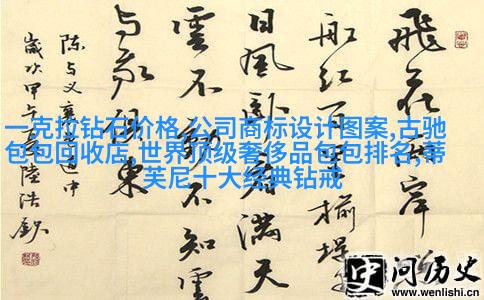 飛花两岸
船红百里榆堤
日風卧看满天
雲不動不知雲
与我俱東
陈与义襄邑道中
歲次甲午
一克拉钻石价格,公司商标设计图案,古驰
包包回收店,世界顶级奢侈品包包排名,蒂
芙尼十大经典钻戒
问历史
www.wenlishi.cn